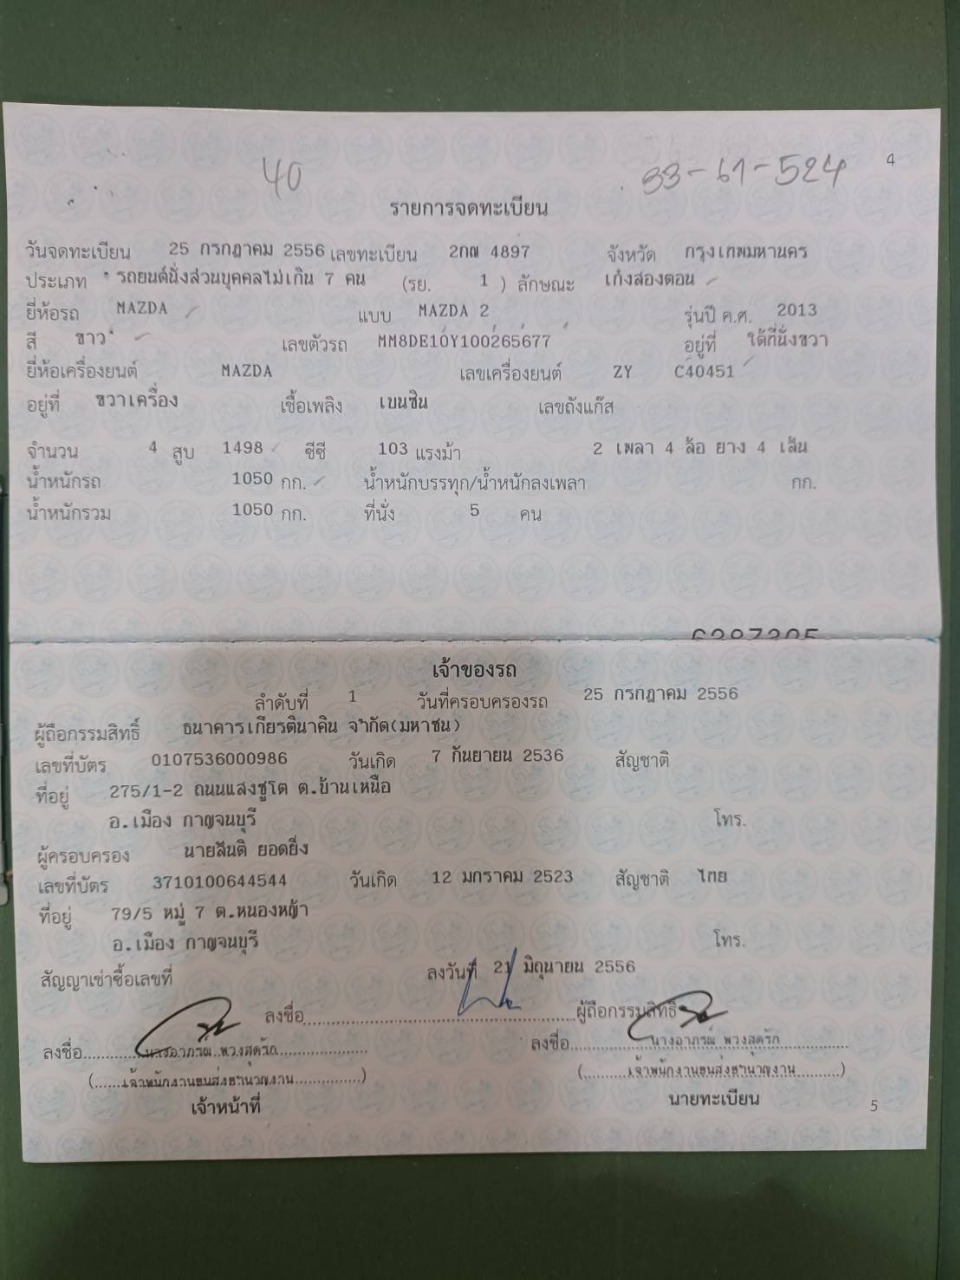 40 33-61-524 4
รายการจดทะเบียน
วันจดทะเบียน 25 กรกฎาคม 2556 เลขทะเบียน 2กณ 4897 จังหวัด กรุงเทพมหานคร
ประเภท รถยนต์นั่งส่วนบุคคลไม่เกิน 7 คน (รย. 1 ) ลักษณะ เก๋งสองตอน
ยี่ห้อรถ MAZDA แบบ MAZDA 2 รุ่นปี ค.ศ. 2013
สี ขาว เลขตัวรถ MM8DE10Y100265677 อยู่ที่ ใต้ที่นั่งขวา
ยี่ห้อเครื่องยนต์ MAZDA เลขเครื่องยนต์ ZY C40451
อยู่ที่ ขวาเครื่อง เชื้อเพลิง เบนซิน เลขถังแก๊ส
จำนวน 4 สูบ 1498 ซีซี 103 แรงม้า 2 เพลา 4 ล้อ ยาง 4 เส้น
น้ำหนักรถ 1050 กก. น้ำหนักบรรทุก/น้ำหนักลงเพลา กก.
น้ำหนักรวม 1050 กก. ที่นั่ง 5 คน
เจ้าของรถ
ลำดับที่ 1 วันที่ครอบครองรถ 25 กรกฎาคม 2556
ผู้ถือกรรมสิทธิ์ ธนาคารเกียรตินาคิน จำกัด(มหาชน)
เลขที่บัตร 0107536000986 วันเกิด 7 กันยายน 2536 สัญชาติ
ที่อยู่ 275/1-2 ถนนแสงชูโต ต.บ้านเหนือ
อ.เมือง กาญจนบุรี โทร.
ผู้ครอบครอง นายสันติ ยอดยิ่ง
เลขที่บัตร 3710100644544 วันเกิด 12 มกราคม 2523 สัญชาติ ไทย
ที่อยู่ 79/5 หมู่ 7 ต.หนองหญ้า
อ.เมือง กาญจนบุรี โทร.
สัญญาเช่าซื้อเลขที่ ลงวันที่ 21 มิถุนายน 2556
ลงชื่อ ผู้ถือกรรมสิทธิ์
ลงชื่อ นางอาภรณ์ พวงสดรัก ลงชื่อ นางอาภรณ์ พวงสดรัก
(เจ้าพนักงานขนส่งชำนาญงาน) (เจ้าพนักงานขนส่งชำนาญงาน)
เจ้าหน้าที่ นายทะเบียน 5